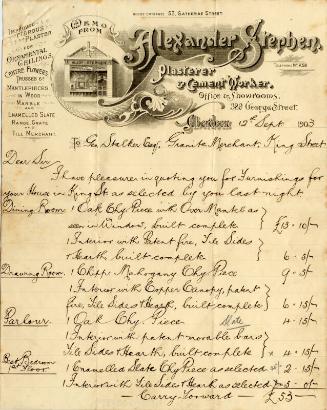 HOUSE ENTRANCE 53, CATHERINE STREET.
MEMO
FROM
Alexander Stephen,
Plasterer
& Cement Worker.
Office & Showrooms,
382 George Street.
TELEPHONE No 458
FIBROUS
PLASTER
FOR
ORNAMENTAL
CEILINGS,
CENTRE FLOWERS
TRUSSES &c
MANTELPIECES
IN WOOD
MARBLE
AND
ENAMELLED SLATE
RANGE, GRATE
AND
TILE MERCHANT.
Aberdeen 12th Sept 1903
To Geo Stalker Esq, Granite Merchant, King Street
Dear Sir
I have pleasure in quoting you for Furnishings for
your House in King St as selected by you last night
Dining Room 1 Oak Chy Piece with Over Mantel as
seen in Window, built complete £13 . 10/-
1 Interior with Patent fire, Tile Sides
& Hearth built complete 6 . 5/-
Drawing Room. 1 Chipp. Mahogany Chy Piece 9 . 5/-
1 Interior with Copper Canopy, patent
fire, Tile Sides & Hearth, built complete 6 . 15/-
Parlour. 1 Oak Chy Piece Slate 4 . 15/-
1 Interior with patent movable bars
Tile Sides & Hearth, built complete 4 . 15/-
Best Bedroom
1st Floor
1 Enamelled Slate Chy Piece as selected 2 . 15/-
1 Interior with Tile Sides & Hearth as selected 5 . 0/-
Carry Forward £53 -